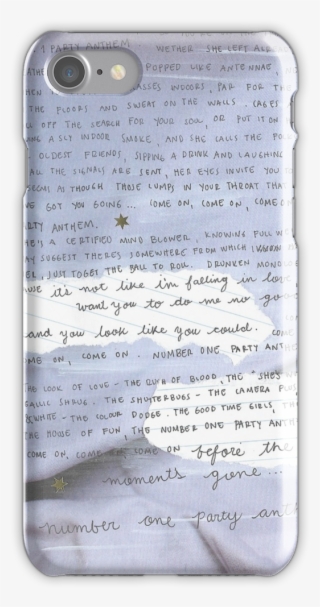 1 PARTY ANTHEM WETHER SHE LEFT
POPPED LIKE ANTENNAE,
GLASSES INDOORS, PAR FOR THE
THE FLOORS AND SWEAT ON THE WALLS. CAGES
OFF THE SEARCH FOR YOUR SOUL, OR PUT IT ON
A SLY INDOOR SMOKE, AND SHE CALLS THE
OLDEST FRIENDS, SIPPING A DRINK AND LAUGHING
ALL THE SIGNALS ARE SENT, HER EYES INVITE YOU
SEEMS AS THOUGH THOSE LUMPS IN YOUR THROAT THAT
GOT YOU GOING... COME ON, COME ON, COME
PARTY ANTHEM.
A CERTIFIED MIND BLOWER, KNOWING FULL
SUGGEST THERE'S SOMEWHERE FROM WHICH
JUST TO GET THE BALL TO ROLL. DRUNKEN
it's not like i'm falling in love,
want you to do me no
and you look like you could.
COME ON, COME ON. NUMBER ONE PARTY
THE LOOK OF LOVE - THE RUSH OF BLOOD, THE "SHE'S
GALLIC SHRUG. THE SHUTTERBUGS - THE CAMERA
&WHITE - THE COLOUR DODGE. THE GOOD TIME GIRLS,
THE HOUSE OF FUN, THE NUMBER ONE PARTY
COME ON, COME ON, COME ON before the
moments gone...
number one party